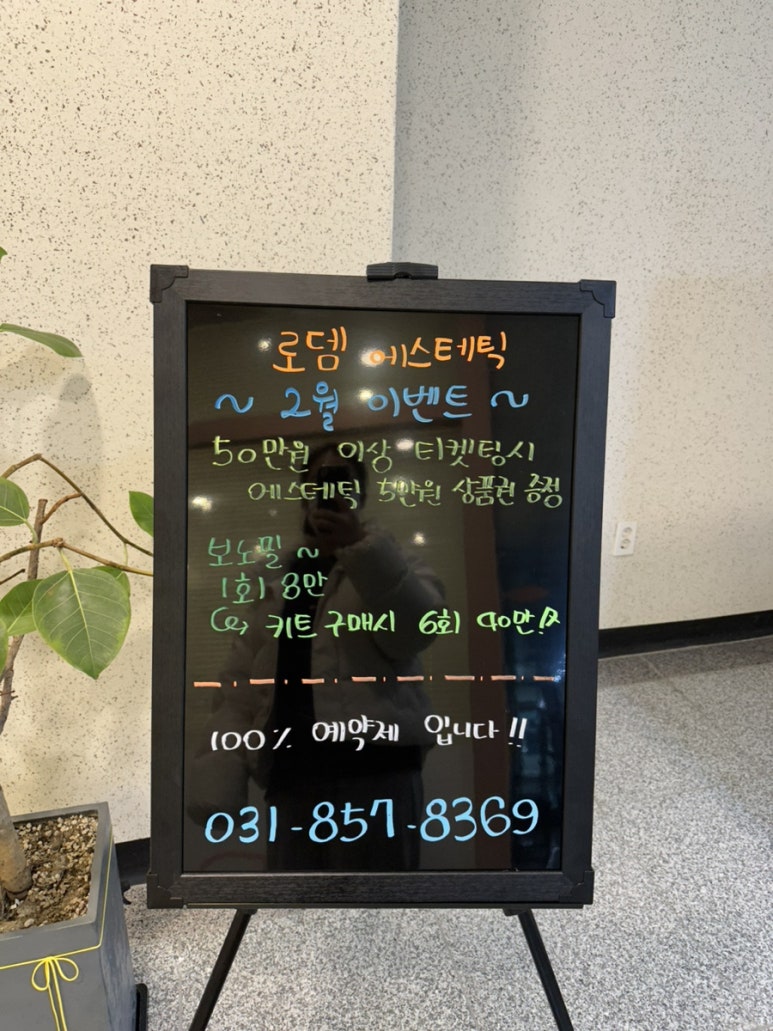 로뎀 에스테틱
~ 2월 이벤트 ~
50만원 이상 티켓팅시
에스테틱 5만원 상품권 증정
보노필 ~
1회 8만
키트 구매시 6회 40만!!
100% 예약제 입니다!!
031-857-8369